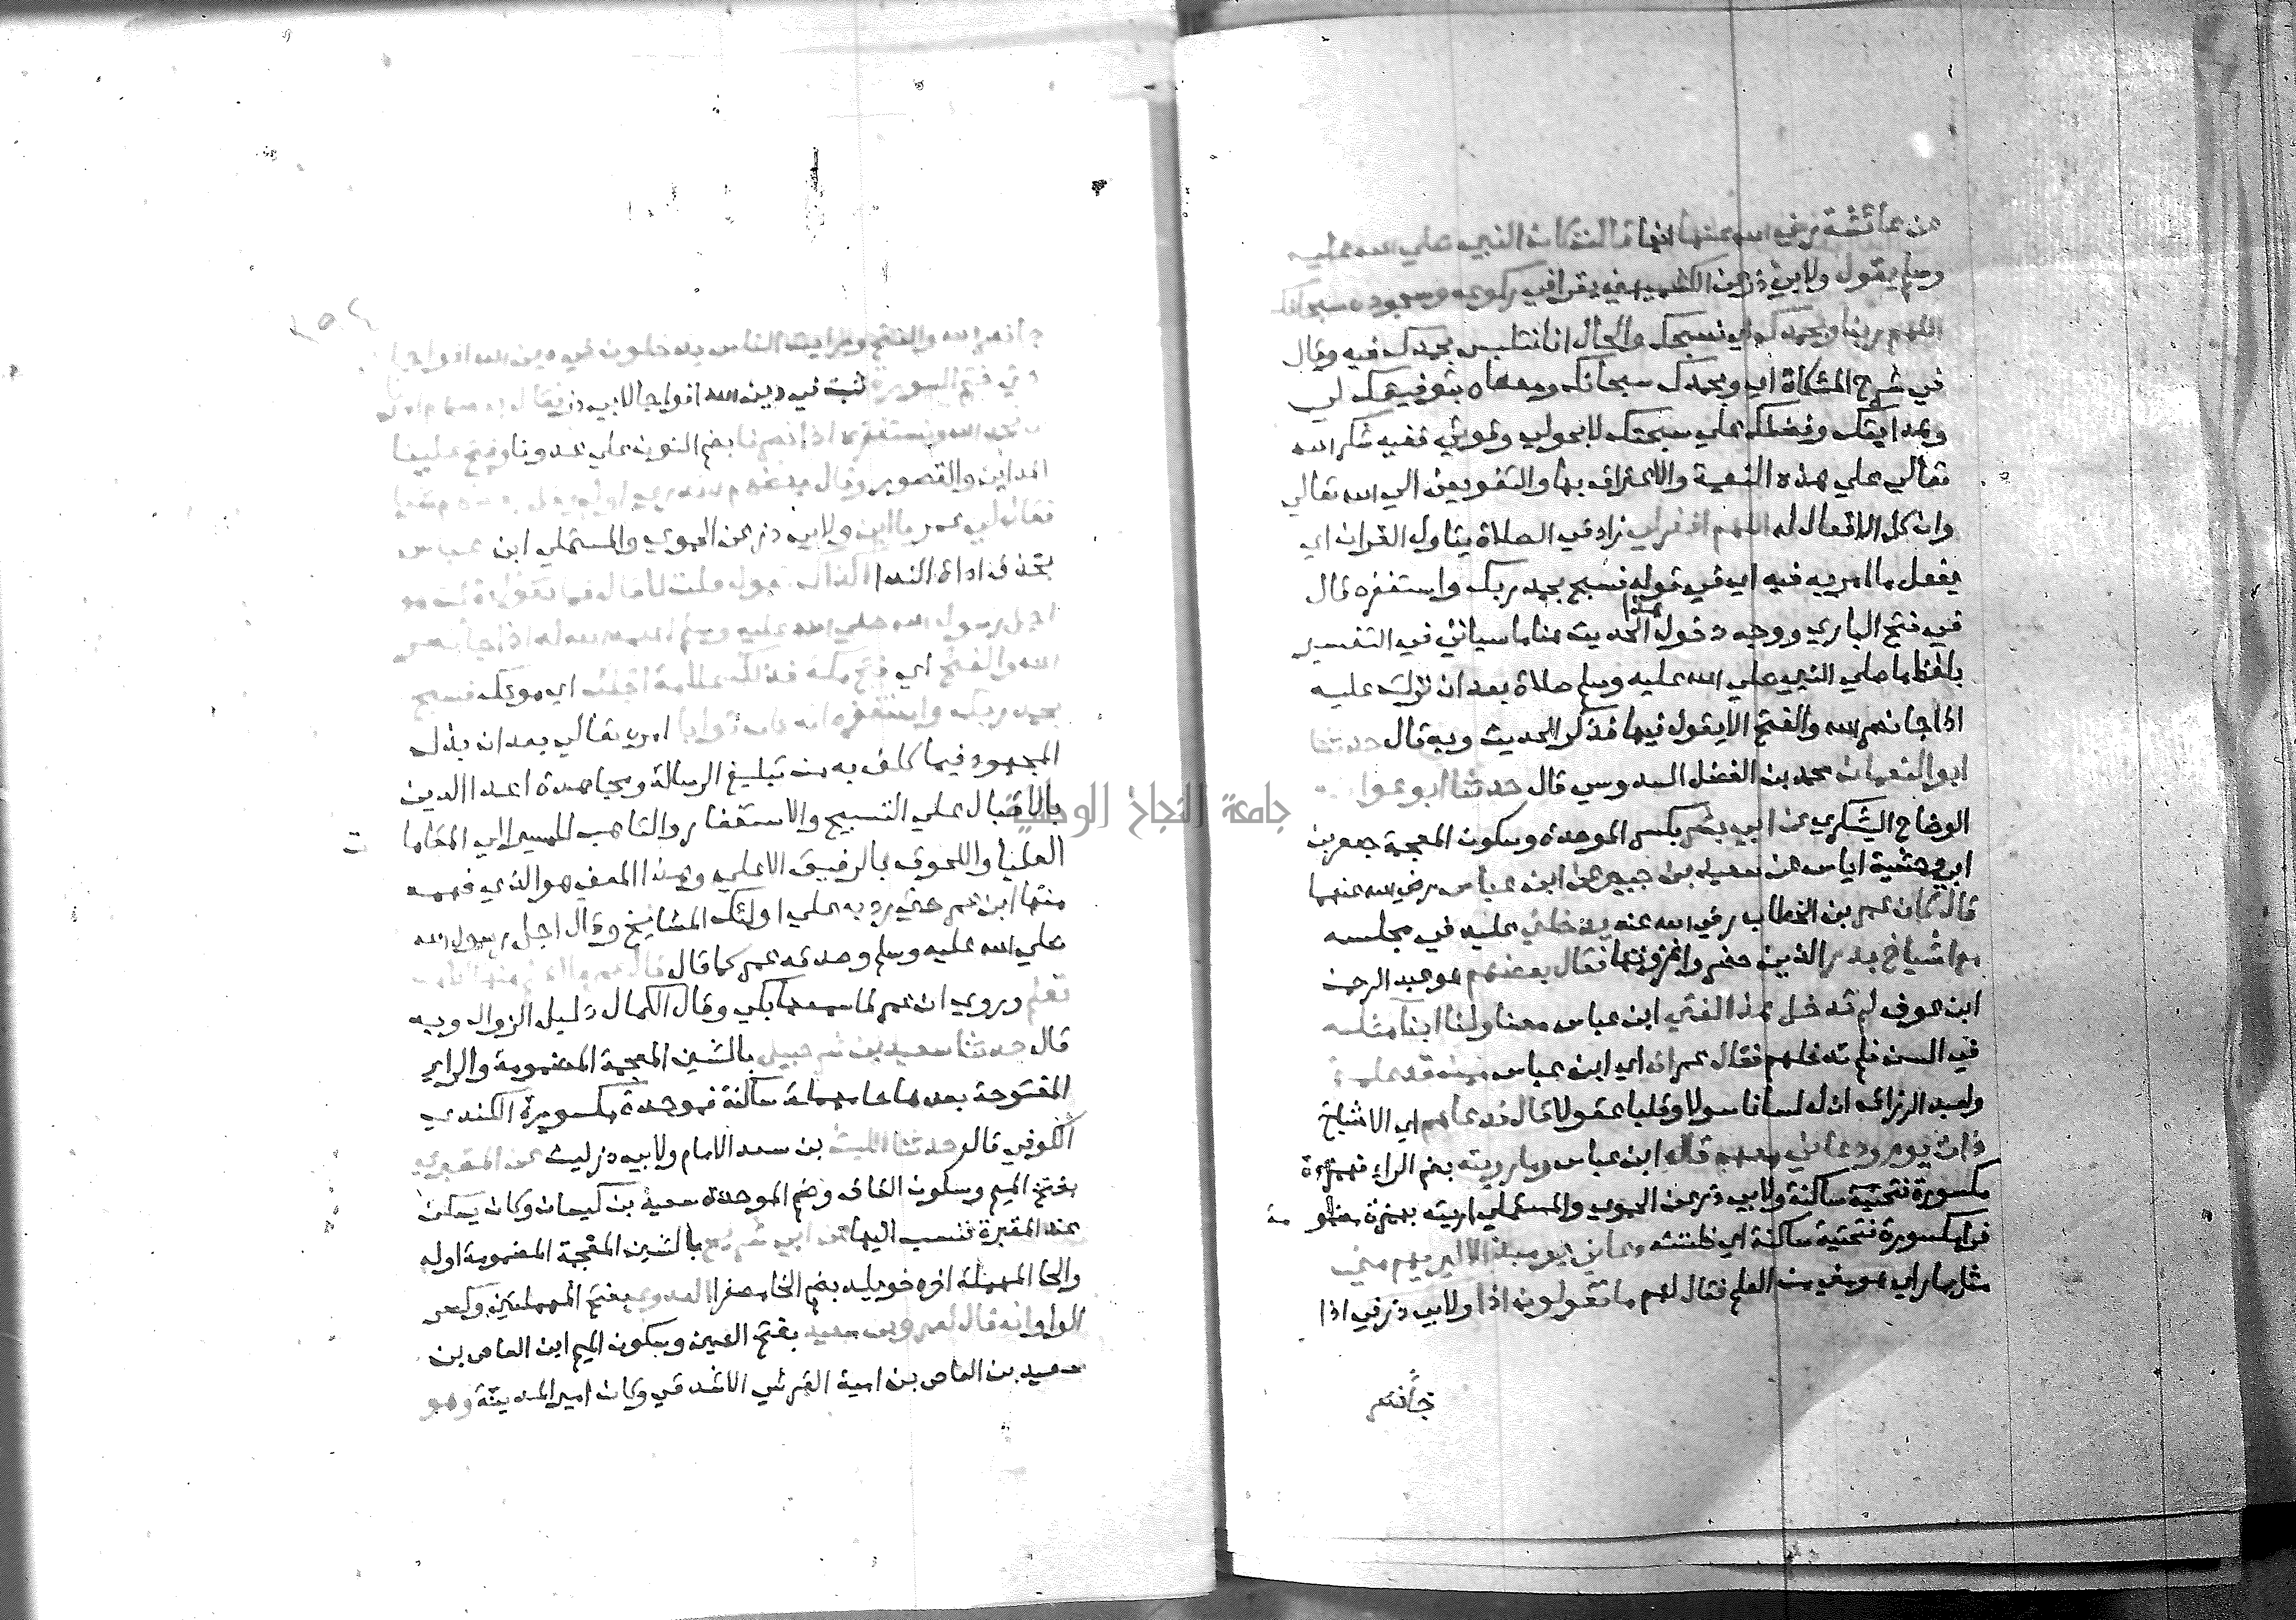 عن عائشة رضي الله عنها انها قالت كان النبي صلي الله عليه
وسلم يقول ولابي ذر عن الكشميهني يقرا في ركوعه وسجوده سبحانك
اللهم ربنا وبحمدك اي نسبحك والحال انا نتلبس بحمدك فيه وقال
في شرح المشكاة اي وبحمدك سبحانك ومعناه بتوفيقك لي
وهدايتك وفضلك علي سبحتك لا بحولي وقوتي ففيه شكر الله
تعالي علي هذه النعمة والاعتراف بها والتفويض الي الله تعالي
وان كل الافعال له اللهم اغفر لي زاد في الصلاة يتاول القران اي
يفعل ما امر به فيه اي في قوله فسبح بحمد ربك واستغفره قال
في فتح الباري ووجه دخول هذا الحديث هنا ما سياتي في التفسير
بلفظ ما صلي النبي صلي الله عليه وسلم صلاة بعد ان نزلت عليه
اذا جا نصر الله والفتح الا يقول فيها فذكر الحديث وبه قال حدثنا
ابو النعمان محمد بن الفضل السدوسي قال حدثنا ابو عوا
الوضاح اليشكري عن ابي بشر بكسر الموحدة وسكون المعجمة جعفر بن
ابي وحشية اياس عن سعيد بن جبير عن ابن عباس رضي الله عنهما
قال كان عمر بن الخطاب رضي الله عنه يدخلني عليه في مجلسه
مع اشياخ بدر الذين حضروا غزوتها فقال بعضهم هو عبد الرحمن
ابن عوف لم تدخل هذا الفتي ابن عباس معنا ولنا ابنا مثله
في السن فلم تدخلهم فقال عمر انه اي ابن عباس ممن قد علمتم
ولعبد الرزاق ان له لسانا سولا وقلبا عقولا قال فدعاهم اي الاشياخ
ذات يوم ودعاني معهم قال ابن عباس وما رويته بضم الراء فهمزة
مكسورة فتحتية ساكنة ولابي ذر عن الحموي والمستملي اريته بهمزة مضمو مة
فرا مكسورة فتحتية ساكنة اي ظننته دعاني يومئذ الا ليريهم مني
مثل ما راي هو مني من العلم فقال لهم ما تقولون اذا ولابي ذر في اذا
جا نصر
جا نصر الله والفتح ورايت الناس يدخلون في دين الله افواجا
ختم السورة ثبت في دين الله افواجا لابي ذر فقال بعضهم
نحمد الله ونستغفره اذا نصرنا بضم النون علي عدونا وفتح علينا
المداين والقصور وقال بعضهم لا ندري او لم يقل بعضهم شيا
فقال لي عمر يا ابن ولابي ذر عن الحموي والمستملي ابن عباس
بحذف اداة النداا كذاك تقول قلت لا قال فما تقول قلت هو
اجل رسول الله صلي الله عليه وسلم اعلمه الله له اذا جا نصر
الله والفتح اي فتح مكة فذلك علامة اجلك اي موتك فسبح
بحمد ربك واستغفره انه كان توابا امره تعالي بعد ان بذل
المجهود فيما كلف به من تبليغ الرسالة ومجاهدة اعدا الدين
بالاقبال علي التسبيح والاستغفار والتاهب للمسير الي المقاما ت
العليا واللحوق بالرفيق الاعلي وهذا المعني هو الذي فهمه
منها ابن عمر حتي رد به علي اولئك المشايخ وقال اجل رسول الله
صلي الله عليه وسلم وصدقه عمر كما قال قال عمر ما اعلم منها الا ما
تعلم وروي ان عمر لما سمعها بكي وقال الكمال دليل الزوال وبه
قال حدثنا سعيد بن شرحبيل بالشين المعجمة المضمومة والراي
المفتوحة بعدها حا مهملة ساكنة فموحدة مكسورة الكندي
الكوفي قال حدثنا الليث بن سعد الامام ولابي ذر ليث عن المقبري
بفتح الميم وسكون القاف وضم الموحدة سعيد بن كيسان وكان يسكن
عند المقبرة فنسب اليها عن ابي شريح بالشين المعجمة المضمومة اوله
والحا المهملة اخره خويلد بضم الخا مصغرا العدوي بفتح المهملتين وكسر
الواو انه قال لعمرو بن سعيد بفتح العين وسكون الميم ابن العاص بن
سعيد بن العاص بن امية القرشي الاشدق وكان امير المدينة وهو
جامعة النجاح الوطنية